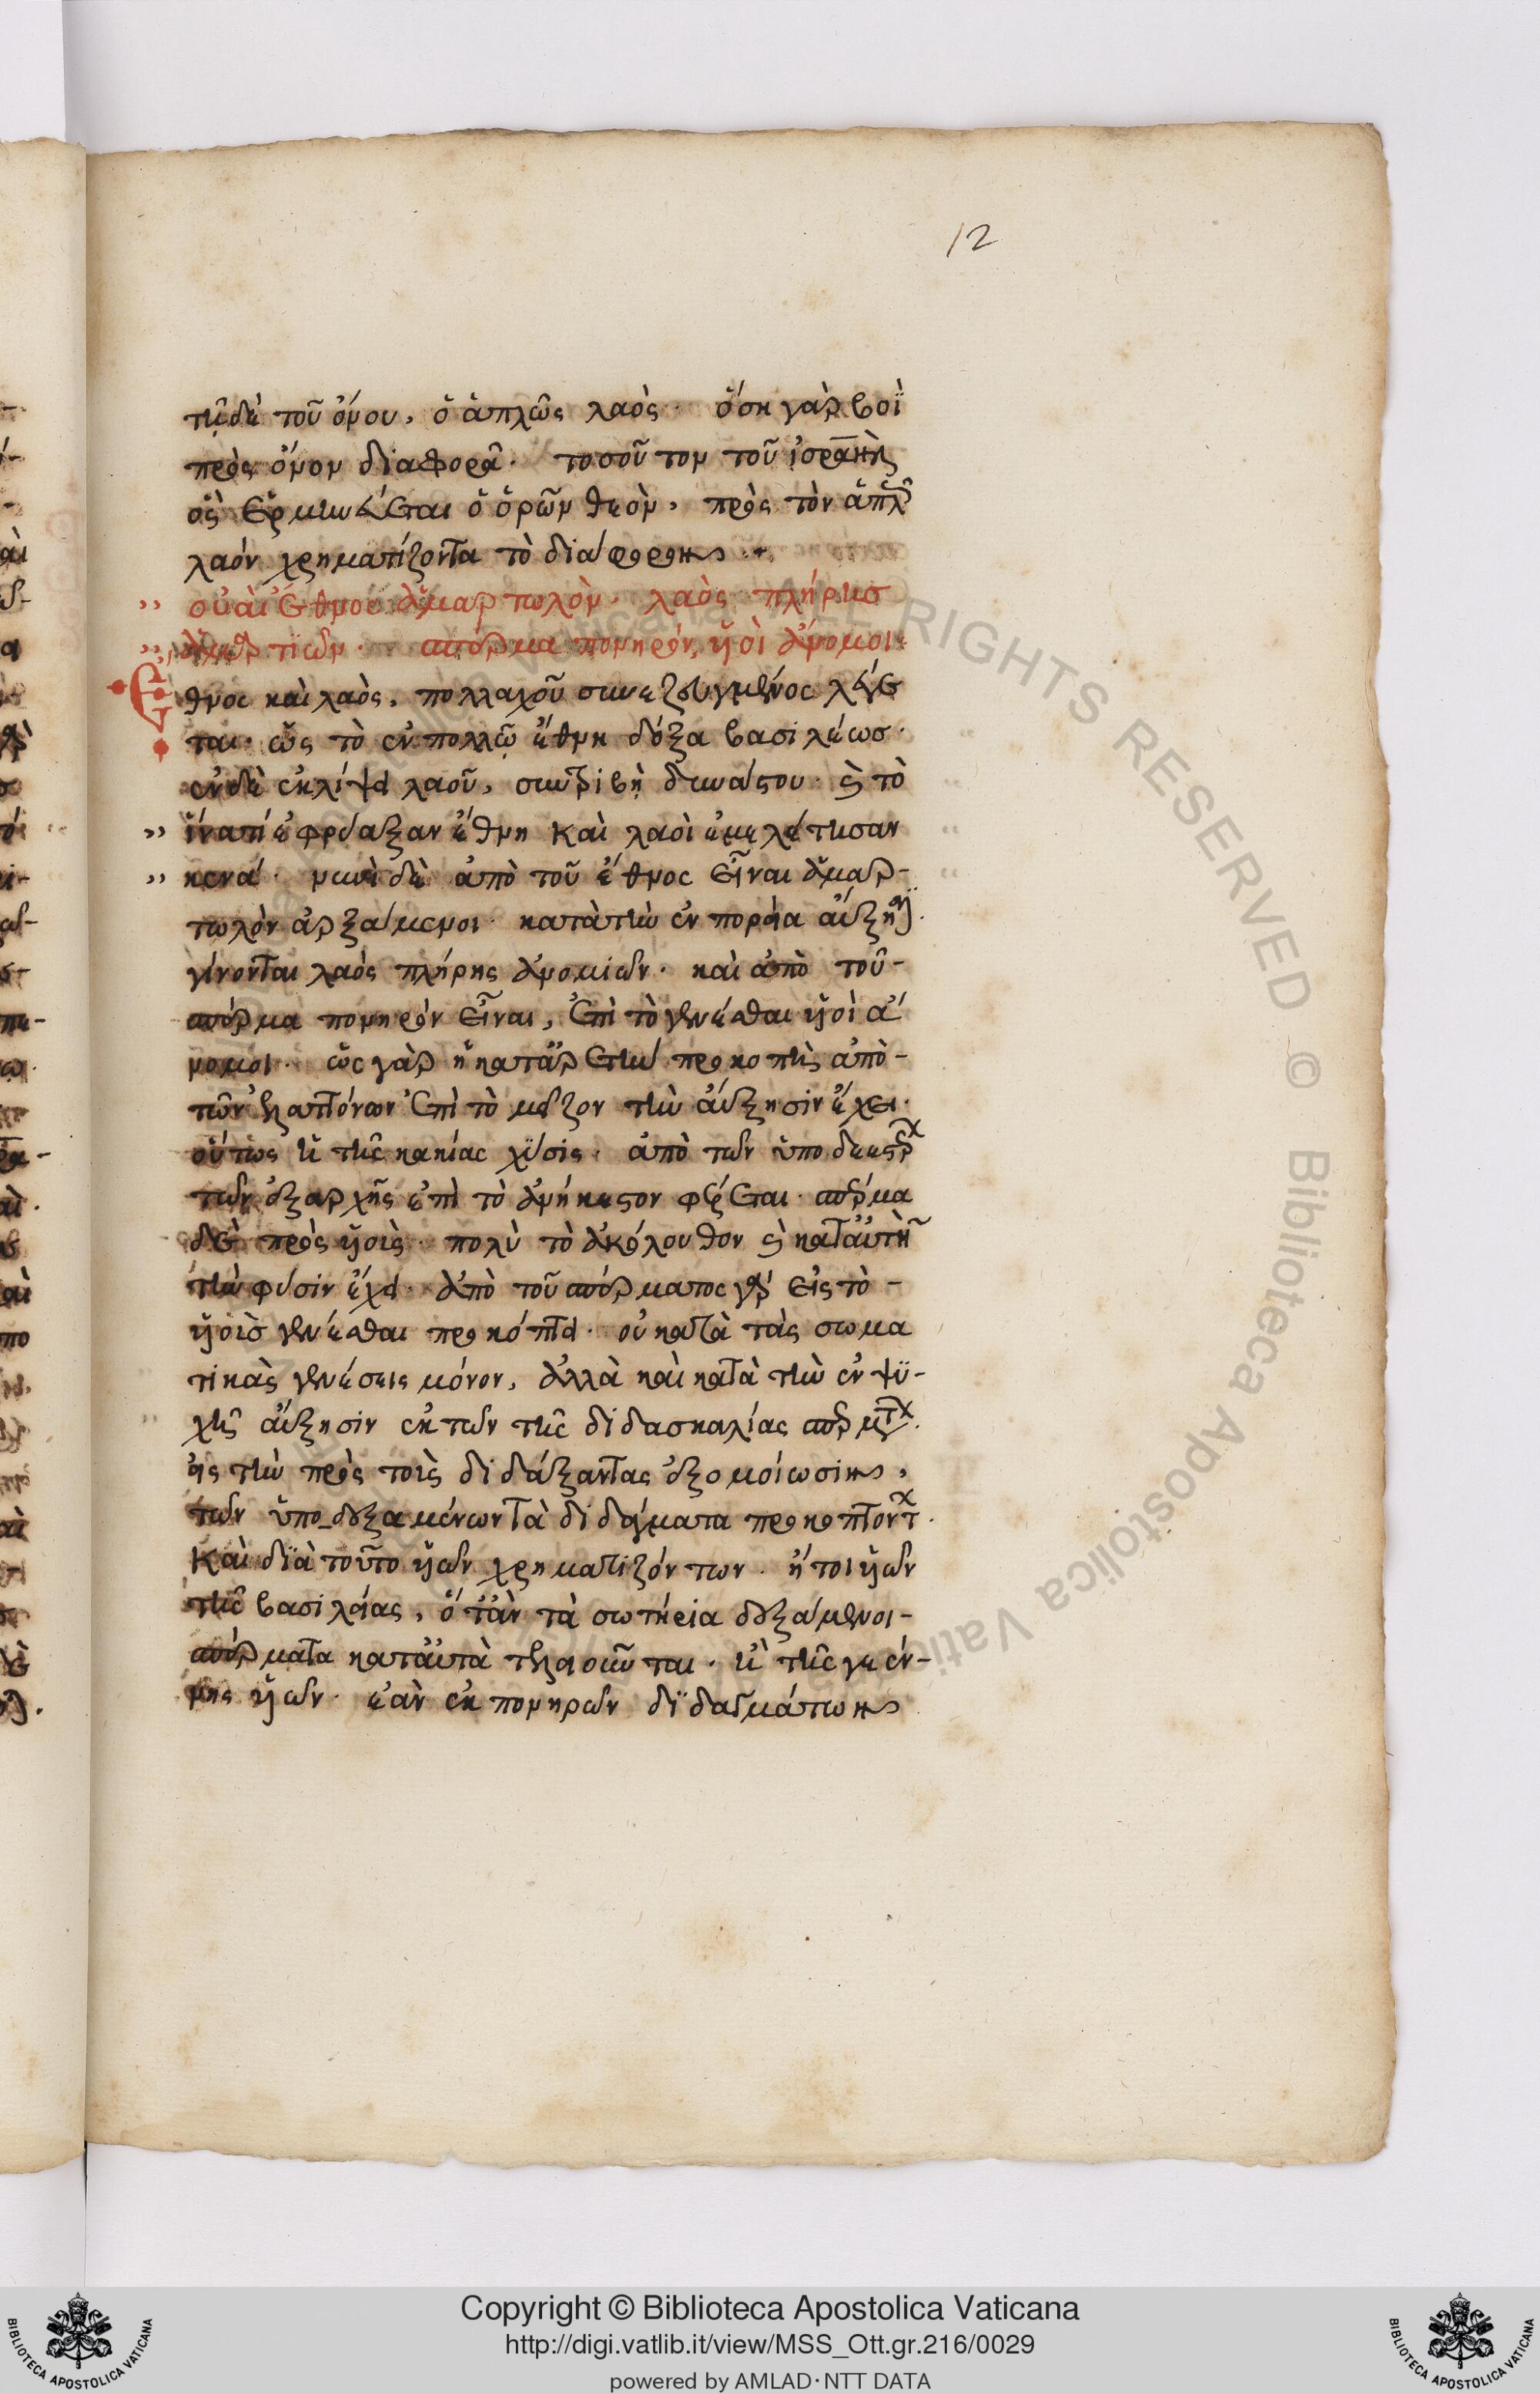 12
τῆ δὲ τοῦ ὄνου, ὁ ἁπλῶς λαὸς· ὅση γὰρ βοῒ
πρὸς ὄνον διαφορὰ· τοσοῦτον τοῦ ἰσραηλ
ὃς ἑρμηνεύεται ὁ ὁρῶν θεὸν, πρὸς τὸν ἁπλ
λαόν χρηματίζοντα τὸ διάφορον·
οὐαὶ ἔθνος ἁμαρτωλὸν· λαὸς πλήρης
ἁμαρτιῶν· σπέρμα πονηρόν, υἱοὶ ἄνομοι·
Ἔθνος καὶ λαὸς, πολλαχοῦ συνεζευγμένος λέγε
ται· ὡς τὸ ἐν πολλῷ ἔθνει δόξα βασιλέως·
ἐν δὲ ἐκλίψει λαοῦ, συντριβὴ δυνάστου· καὶ τὸ
ἱνατί ἐφρύαξαν ἔθνη καὶ λαοὶ ἐμελέτησαν
κενά· νυνὶ δὲ ἀπὸ τοῦ ἔθνος εἶναι ἁμαρ-
τωλὸν ἀρξάμενοι· κατὰ τὴν ἐν πορεία αὔξησιν·
γίνονται λαὸς πλήρης ἀνομιῶν· καὶ ἀπὸ τοῦ-
σπέρμα πονηρόν εἶναι, ἐπὶ τὸ γενέσθαι υἱοὶ ἄ
νομοι· ὡς γὰρ ἡ κατ' ἀρετὴν προκοπὴ ἀπὸ-
τῶν ἐλαττόνων ἐπὶ τὸ μεῖζον τὴν αὔξησιν ἔχει·
οὕτως ἡ τῆς κακίας χύσις· ἀπὸ τῶν ὑποδεεστέρ
τῶν ἐξαρχῆς ἐπὶ τὸ ἀνήκεστον φέρεται· σπέρμα
δὲ πρὸς υἱοὺς· πολὺ τὸ ἀκόλουθον καὶ κατ' αὐτὴν
τὴν φύσιν ἔχει· ἀπὸ τοῦ σπέρματος γὰρ εἰς τὸ-
υἱοὺς γενέσθαι προκόπτει· οὐ κατὰ τὰς σωμα
τικὰς γενέσεις μόνον, ἀλλὰ καὶ κατὰ τὴν ἐν ψυ-
χῆ αὔξησιν ἐκ τῶν τῆς διδασκαλίας σπερμάτων·
εἰς τὴν πρὸς τοὺς διδάξαντας ἐξομοίωσιν,
τῶν ὑποδεξαμένων τὰ διδάγματα προκοπτόντ·
καὶ διὰ τοῦτο υἱῶν χρηματιζόντων· ἤτοι υἱῶν
τῆς βασιλείας, ὅτ' ἂν τὰ σωτήρια δεξάμενοι-
σπέρματα κατ' αὐτὰ τελειοῦνται· ἢ τῆς γεέν-
νης υἱῶν· ἐὰν ἐκ πονηρῶν διδαγμάτων
ALL RIGHTS RESERVED © Biblioteca Apostolica Vaticana
Copyright © Biblioteca Apostolica Vaticana
http://digi.vatlib.it/view/MSS_Ott.gr.216/0029
powered by AMLAD·NTT DATA
BIBLIOTECA APOSTOLICA VATICANA
BIBLIOTECA APOSTOLICA VATICANA